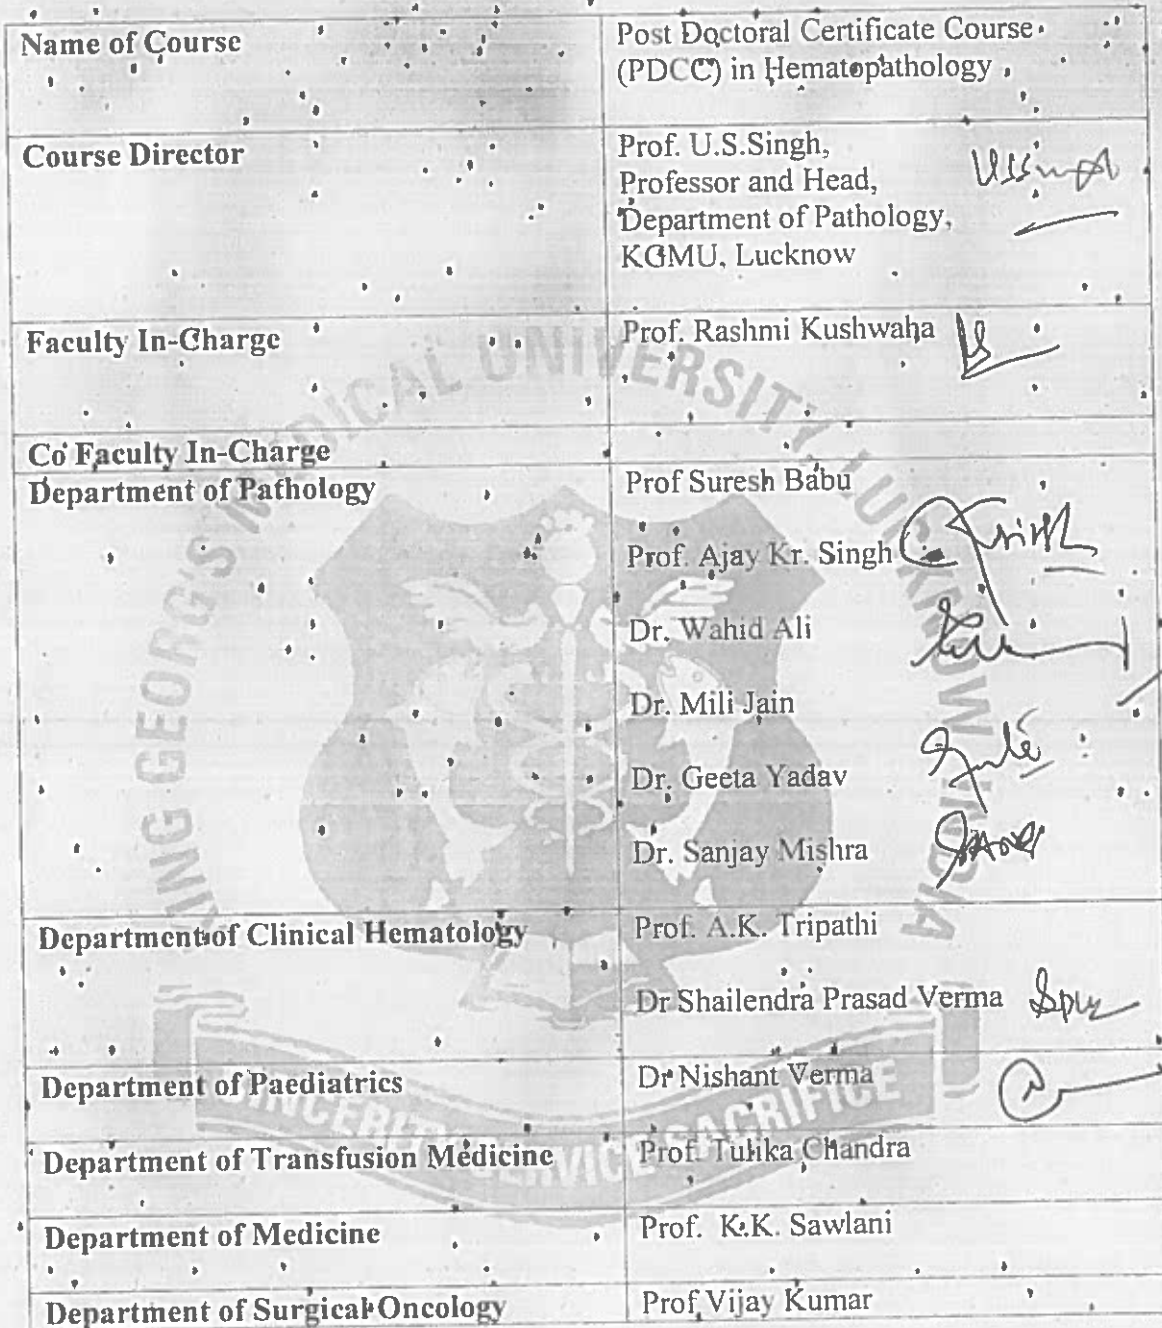 Name of Course
Post Doctoral Certificate Course
(PDCC) in Hematopathology
Course Director
Prof. U.S.Singh,
Professor and Head,
Department of Pathology,
KGMU, Lucknow
Faculty In-Charge
Prof. Rashmi Kushwaha
Co Faculty In-Charge
Department of Pathology
Prof Suresh Babu
Prof. Ajay Kr. Singh
Dr. Wahid Ali
Dr. Mili Jain
Dr. Geeta Yadav
Dr. Sanjay Mishra
Department of Clinical Hematology
Prof. A.K. Tripathi
Dr Shailendra Prasad Verma
Department of Paediatrics
Dr Nishant Verma
Department of Transfusion Medicine
Prof. Tulika Chandra
Department of Medicine
Prof. K.K. Sawlani
Department of Surgical Oncology
Prof Vijay Kumar
KING GEORGE'S MEDICAL UNIVERSITY, LUCKNOW INDIA
SINCERITY SERVICE SACRIFICE